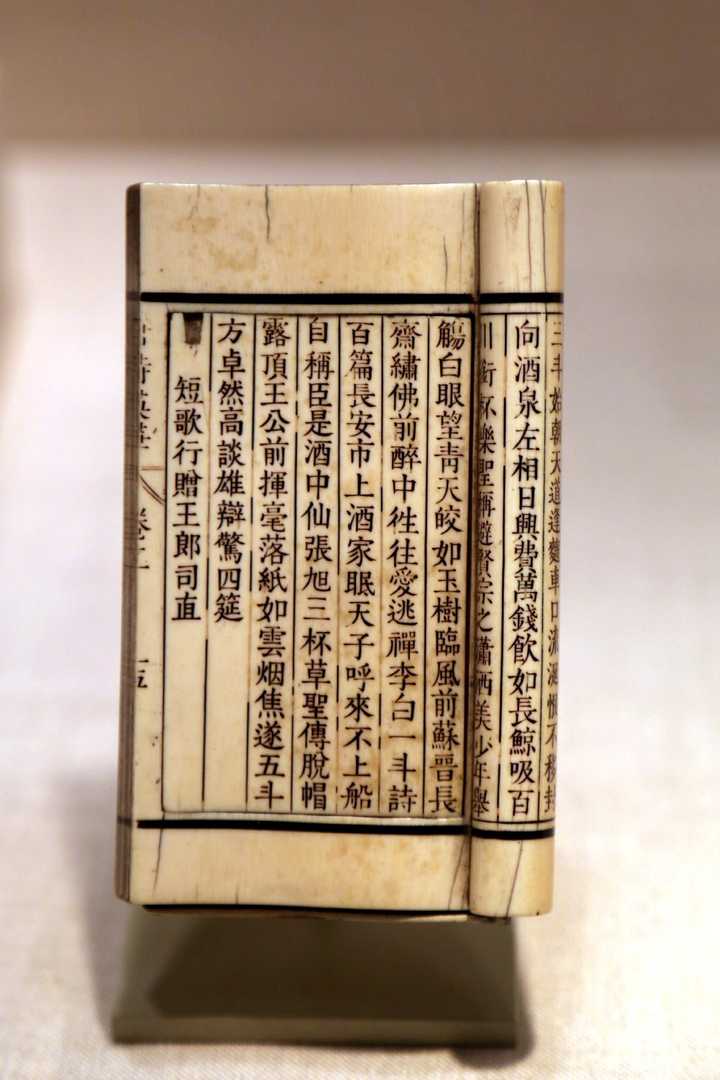 三斗始朝天道逢麴車口流涎恨不移封
向酒泉左相日興費萬錢飲如長鯨吸百
川銜杯樂聖稱避賢宗之瀟洒美少年舉
觴白眼望靑天皎如玉樹臨風前蘇晉長
齋繡佛前醉中徃往愛逃禪李白一斗詩
百篇長安市上酒家眠天子呼來不上船
自稱臣是酒中仙張旭三杯草聖傳脫帽
露頂王公前揮毫落紙如雲烟焦遂五斗
方卓然高談雄辯驚四筵
短歌行贈王郎司直
詩英華 卷二